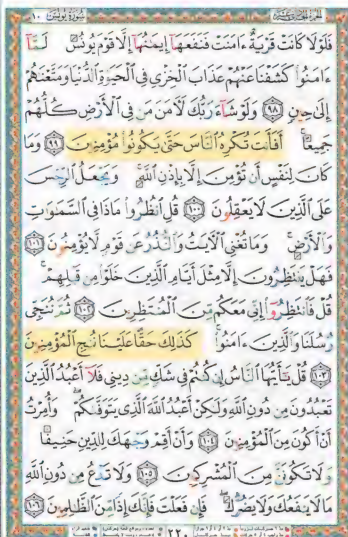 الجزء الحادي عشر سورة يونس ١٠
فَلَوْلَا كَانَتْ قَرْيَةٌ ءَامَنَتْ فَنَفَعَهَآ إِيمَٰنُهَآ إِلَّا قَوْمَ يُونُسَ لَمَّآ
ءَامَنُوا۟ كَشَفْنَا عَنْهُمْ عَذَابَ ٱلْخِزْىِ فِى ٱلْحَيَوٰةِ ٱلدُّنْيَا وَمَتَّعْنَٰهُمْ
إِلَىٰ حِينٍ ٩٨ وَلَوْ شَآءَ رَبُّكَ لَءَامَنَ مَن فِى ٱلْأَرْضِ كُلُّهُمْ
جَمِيعًا ۚ أَفَأَنتَ تُكْرِهُ ٱلنَّاسَ حَتَّىٰ يَكُونُوا۟ مُؤْمِنِينَ ٩٩ وَمَا
كَانَ لِنَفْسٍ أَن تُؤْمِنَ إِلَّا بِإِذْنِ ٱللَّهِ ۚ وَيَجْعَلُ ٱلرِّجْسَ
عَلَى ٱلَّذِينَ لَا يَعْقِلُونَ ١٠٠ قُلِ ٱنظُرُوا۟ مَاذَا فِى ٱلسَّمَٰوَٰتِ
وَٱلْأَرْضِ ۚ وَمَا تُغْنِى ٱلْءَايَٰتُ وَٱلنُّذُرُ عَن قَوْمٍ لَّا يُؤْمِنُونَ ١٠١
فَهَلْ يَنتَظِرُونَ إِلَّا مِثْلَ أَيَّامِ ٱلَّذِينَ خَلَوْا۟ مِن قَبْلِهِمْ ۚ
قُلْ فَٱنتَظِرُوٓا۟ إِنِّى مَعَكُم مِّنَ ٱلْمُنتَظِرِينَ ١٠٢ ثُمَّ نُنَجِّى
رُسُلَنَا وَٱلَّذِينَ ءَامَنُوا۟ ۚ كَذَٰلِكَ حَقًّا عَلَيْنَا نُنجِ ٱلْمُؤْمِنِينَ
١٠٣ قُلْ يَٰٓأَيُّهَا ٱلنَّاسُ إِن كُنتُمْ فِى شَكٍّ مِّن دِينِى فَلَآ أَعْبُدُ ٱلَّذِينَ
تَعْبُدُونَ مِن دُونِ ٱللَّهِ وَلَٰكِنْ أَعْبُدُ ٱللَّهَ ٱلَّذِى يَتَوَفَّىٰكُمْ ۖ وَأُمِرْتُ
أَنْ أَكُونَ مِنَ ٱلْمُؤْمِنِينَ ١٠٤ وَأَنْ أَقِمْ وَجْهَكَ لِلدِّينِ حَنِيفًا
وَلَا تَكُونَنَّ مِنَ ٱلْمُشْرِكِينَ ١٠٥ وَلَا تَدْعُ مِن دُونِ ٱللَّهِ
مَا لَا يَنفَعُكَ وَلَا يَضُرُّكَ ۖ فَإِن فَعَلْتَ فَإِنَّكَ إِذًا مِّنَ ٱلظَّٰلِمِينَ ١٠٦
٢٢٠